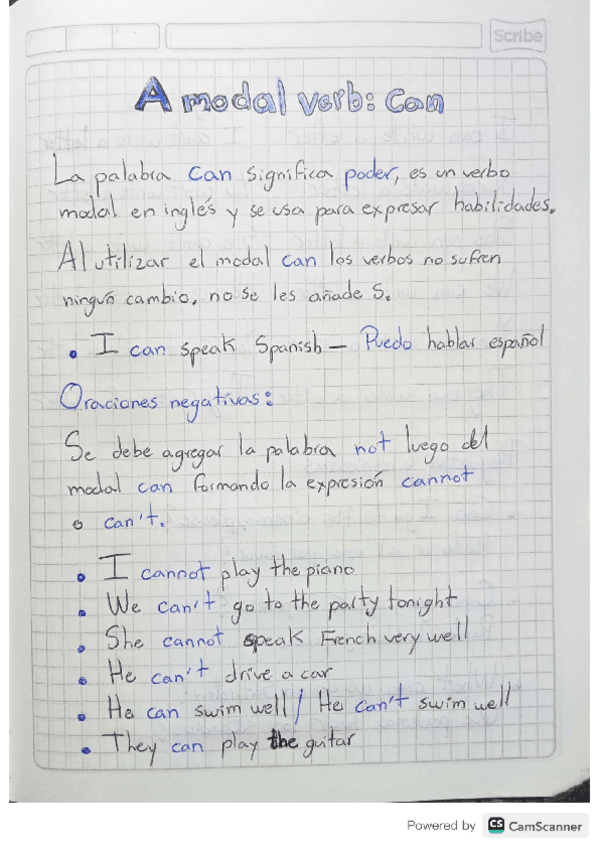 Scribe
A modal verb: Can
La palabra can significa poder, es un verbo
modal en inglés y se usa para expresar habilidades.
Al utilizar el modal can los verbos no sufren
ningún cambio, no se les añade s.
• I can speak Spanish – Puedo hablar español
Oraciones negativas:
Se debe agregar la palabra not luego del
modal can formando la expresión cannot
o can't.
• I cannot play the piano
• We can't go to the party tonight
• She cannot speak French very well
• He can't drive a car
• He can swim well / He can't swim well
• They can play the guitar
Powered by CS CamScanner